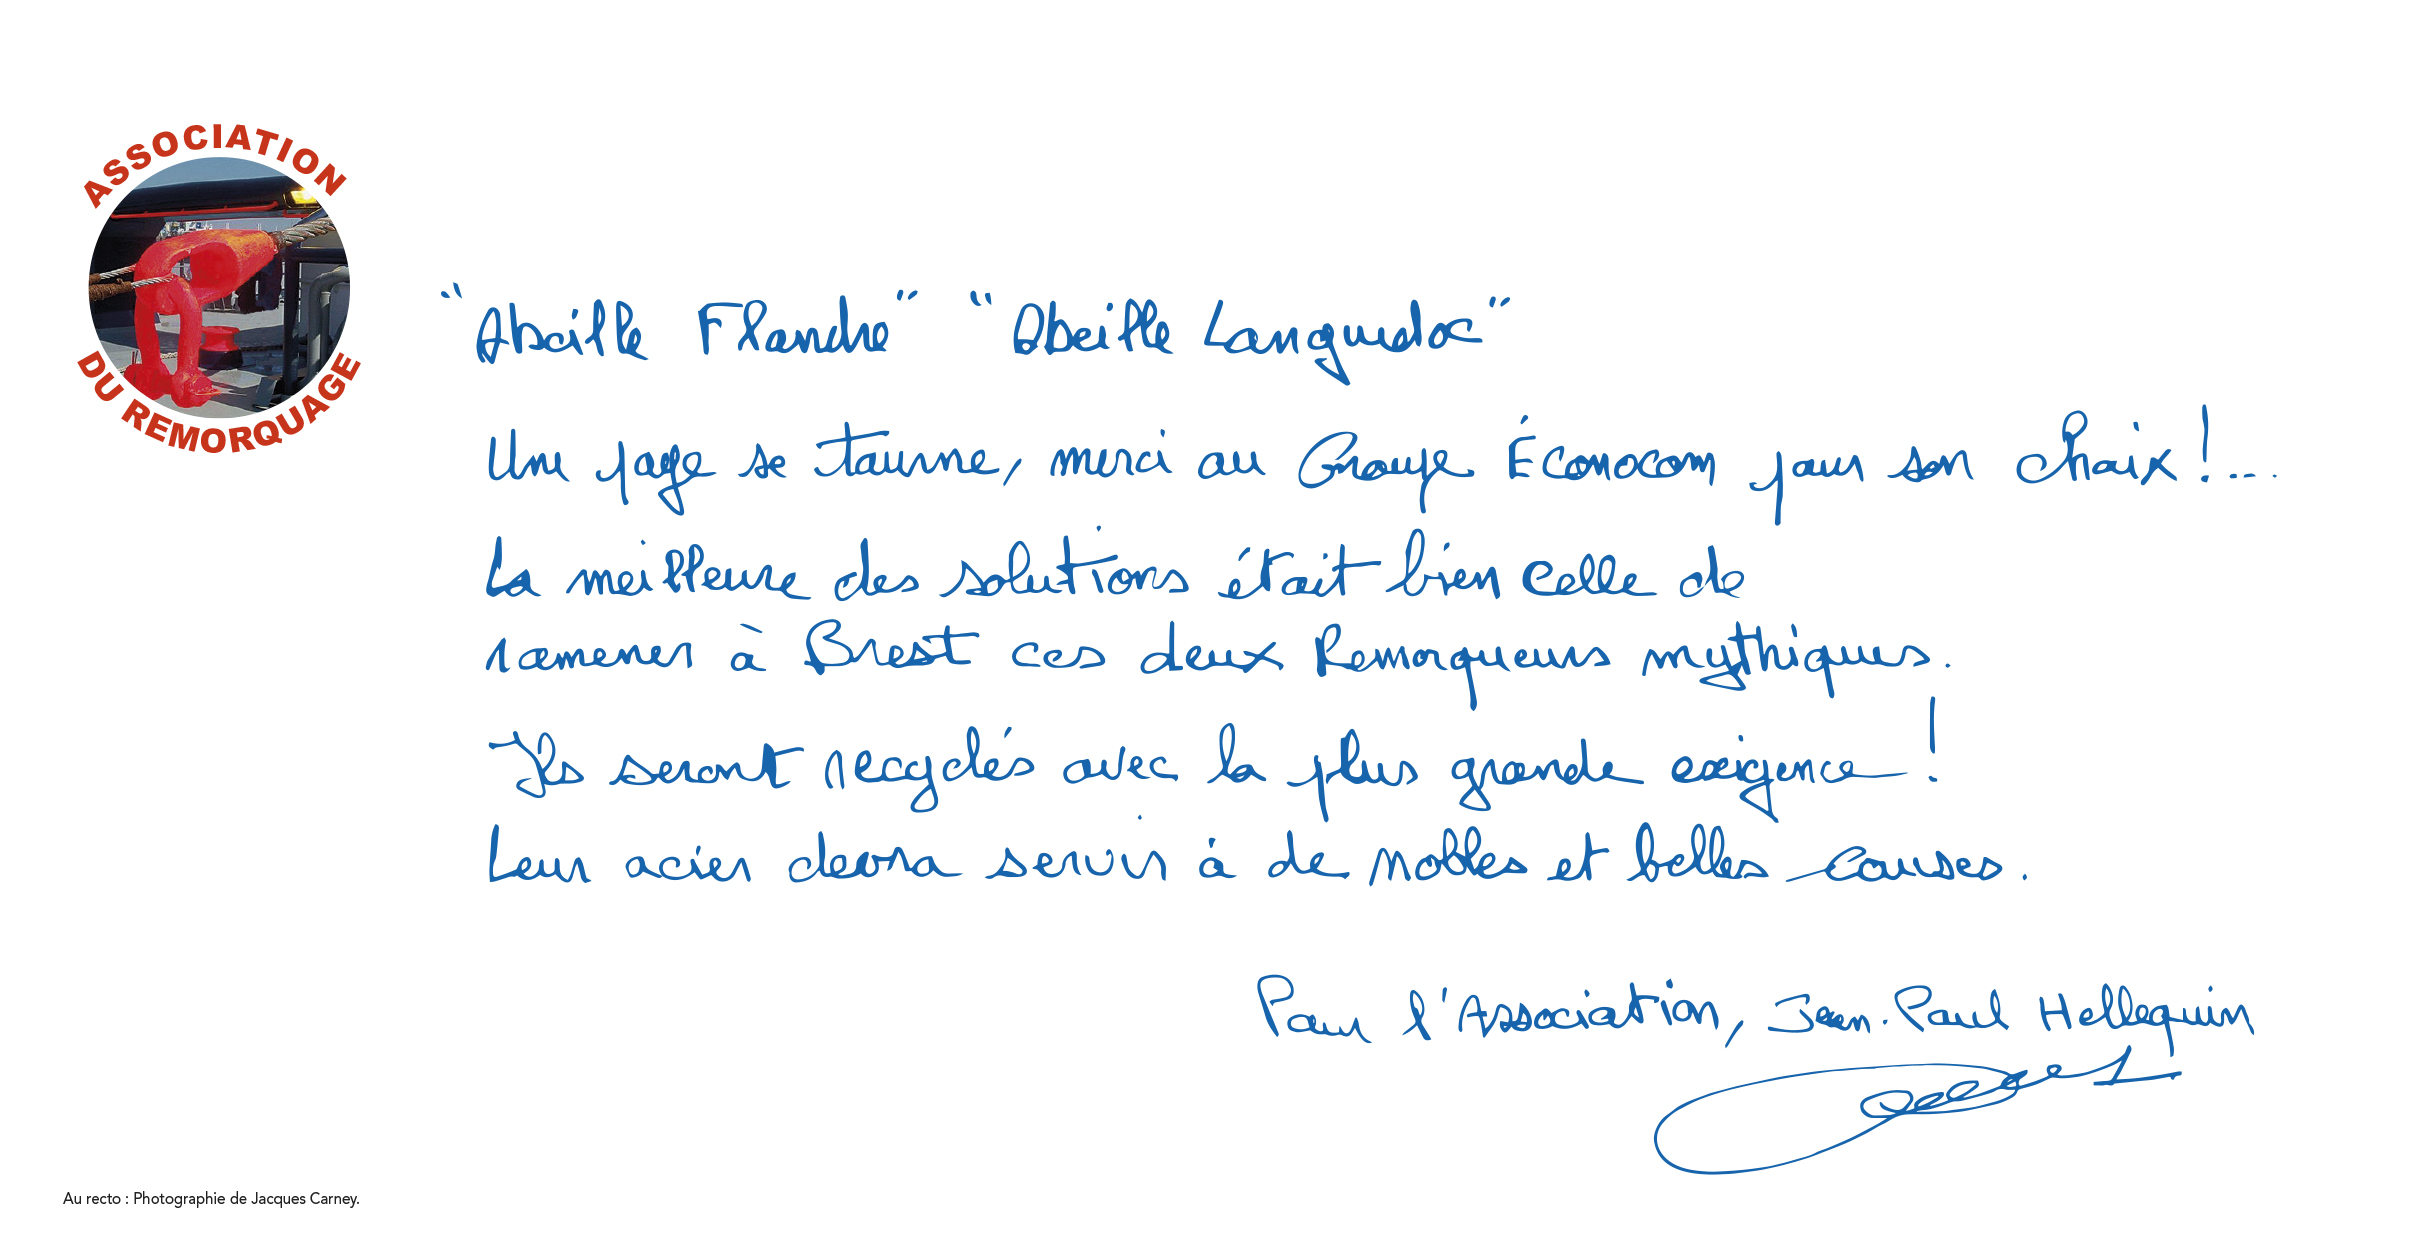 ASSOCIATION
DU REMORQUAGE
"Abeille Flandre" "Abeille Languedoc"
Une page se tourne, merci au Groupe Économ pour son choix !...
La meilleure des solutions était bien celle de
ramener à Brest ces deux Remorqueurs mythiques.
Ils seront recyclés avec la plus grande exigence !
Leur acier devra servir à de nobles et belles causes.
Pour l'Association, Jean-Paul Hellequin
Au recto : Photographie de Jacques Carney.